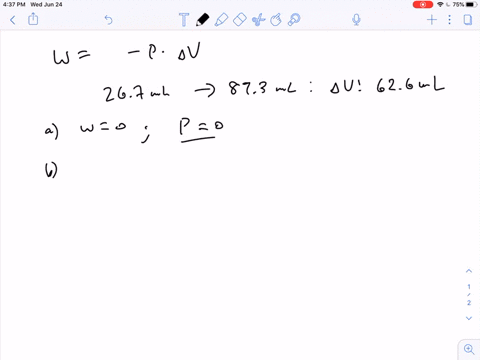 4:37 PM Wed Jun 24
75%
W = - P · ΔV
26.7 mL → 87.3 mL : ΔV! 62.6 mL
a) w = 0 ; P = 0
b)
1
/
2